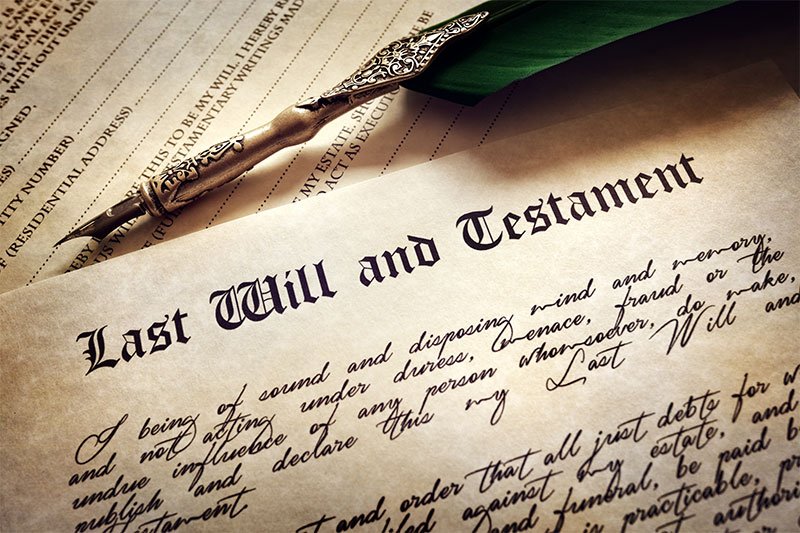 THAT LEGAL ACT
WITHOUT UNDER
SIGNED.
UTTY NUMBER)
OF (RESIDENTIAL ADDRESS)
HEREBY
THIS TO BE MY WILL, I HEREBY
TAMENTARY WRITINGS MAD
MY ESTATE,
ACT AS
Last Will and Testament
I being of sound and disposing mind and memory,
and not acting under duress, menace, fraud or the
undue influence of any person whomsoever, do make,
publish and declare this my Last Will and
Testament
and order that all just debts for w
against my estate, and
and funeral, be paid b
is practicable, pr
authori